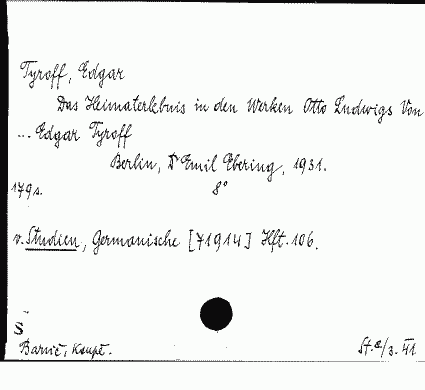 Tyroff, Edgar
Das Heimaterlebnis in den Werken Otto Ludwigs Von
... Edgar Tyroff
Berlin, Dr Emil Ebering, 1931.
179s. 8°
v. Studien, Germanische [71914] Hft. 106.
S
Barvič, koupě. St.a/3. 41